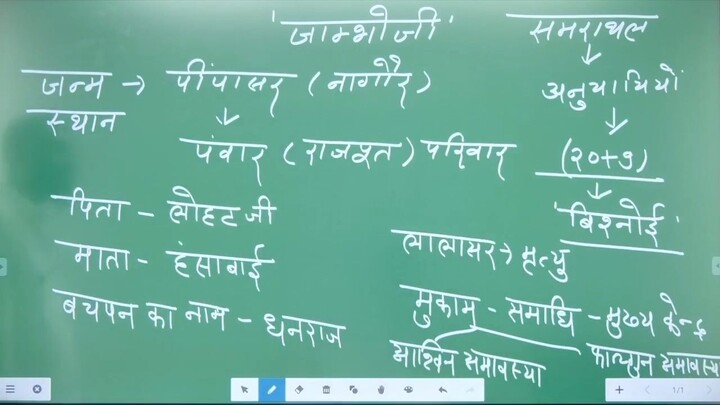 'जाम्भोजी'
जन्म → पींपासर (नागौर)
स्थान
पंवार (राजपूत) परिवार
पिता - लोहटजी
माता - हंसाबाई
बचपन का नाम - धनराज
समराथल
अनुयायियों
(२०+९)
'बिश्नोई'
लालासर → मृत्यु
मुकाम - समाधि - मुख्य केन्द्र
आश्विन अमावस्या
फाल्गुन अमावस्या
1/1